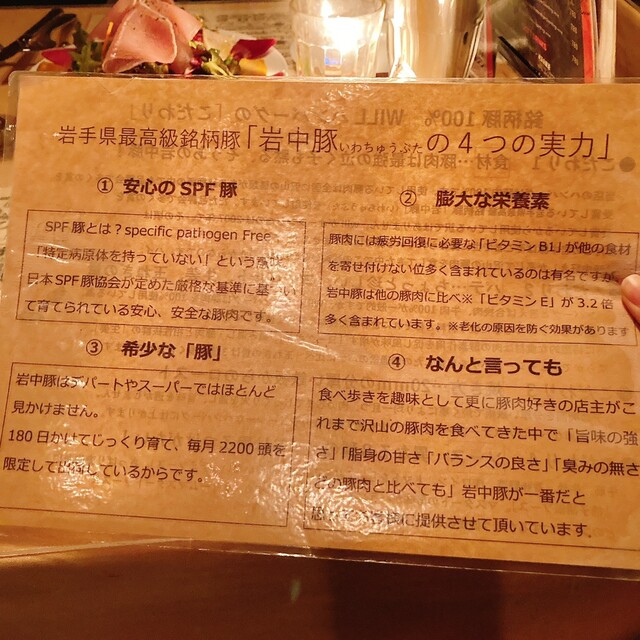 岩手県最高級銘柄豚「岩中豚いわちゅうぶたの4つの実力」
① 安心のSPF豚
SPF豚とは？specific pathogen Free
「特定病原体を持っていない」という意味
日本SPF豚協会が定めた厳格な基準に基づい
て育てられている安心、安全な豚肉です。
② 膨大な栄養素
豚肉には疲労回復に必要な「ビタミンB1」が他の食材
を寄せ付けない位多く含まれているのは有名ですが
岩中豚は他の豚肉に比べ※「ビタミンE」が3.2倍
多く含まれています。※老化の原因を防ぐ効果があります
③ 希少な「豚」
岩中豚はデパートやスーパーではほとんど
見かけません。
180日かけてじっくり育て、毎月2200頭を
限定して出荷しているからです。
④ なんと言っても
食べ歩きを趣味として更に豚肉好きの店主がこ
れまで沢山の豚肉を食べてきた中で「旨味の強
さ」「脂身の甘さ」「バランスの良さ」「臭みの無さ
どの豚肉と比べても」岩中豚が一番だと
に提供させて頂いています。